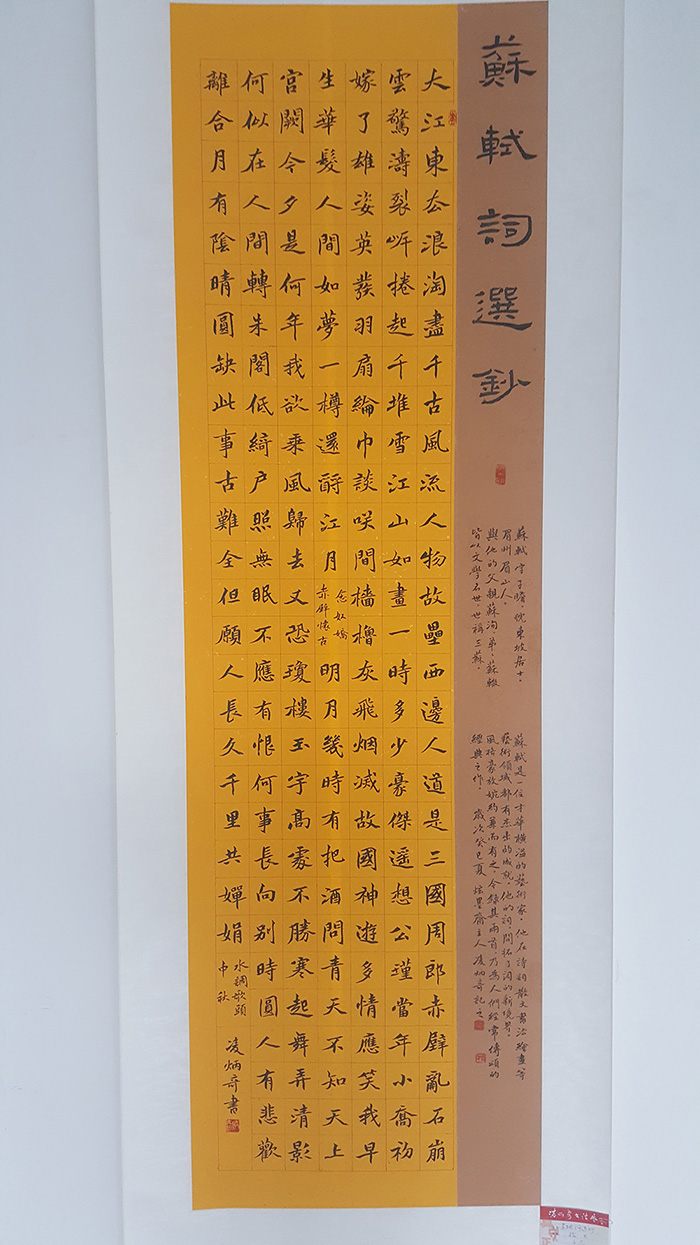 蘇軾詞選鈔
蘇軾字子瞻，東坡居士，
眉州眉山人。
與他的父親蘇洵、弟、蘇轍
皆以文學名世世稱三蘇。
蘇軾是一位才華橫溢的藝術家，他在詩詞散文書法繪畫等
藝術領域都有杰出的成就，他的詞，開拓了詞的新境界，
風格豪放婉約兼而有之，今錄其兩首乃為人們經常傳頌的
經典之作。歲次癸巳夏炫墨齋主人凌炳奇記之
大江東去浪淘盡千古風流人物故壘西邊人道是三國周郎赤壁亂石崩
雲驚濤裂岸捲起千堆雪江山如畫一時多少豪傑遥想公瑾當年小喬初
嫁了雄姿英發羽扇綸巾談咲間檣櫓灰飛烟滅故國神遊多情應笑我早
生華髮人間如夢一樽還酹江月念奴嬌赤壁懷古明月幾時有把酒問青天不知天上
宮闕今夕是何年我欲乘風歸去又恐瓊樓玉宇高處不勝寒起舞弄清影
何似在人間轉朱閣低綺户照無眠不應有恨何事長向别時圓人有悲歡
離合月有陰晴圓缺此事古難全但願人長久千里共嬋娟水調歌頭中秋凌炳奇書